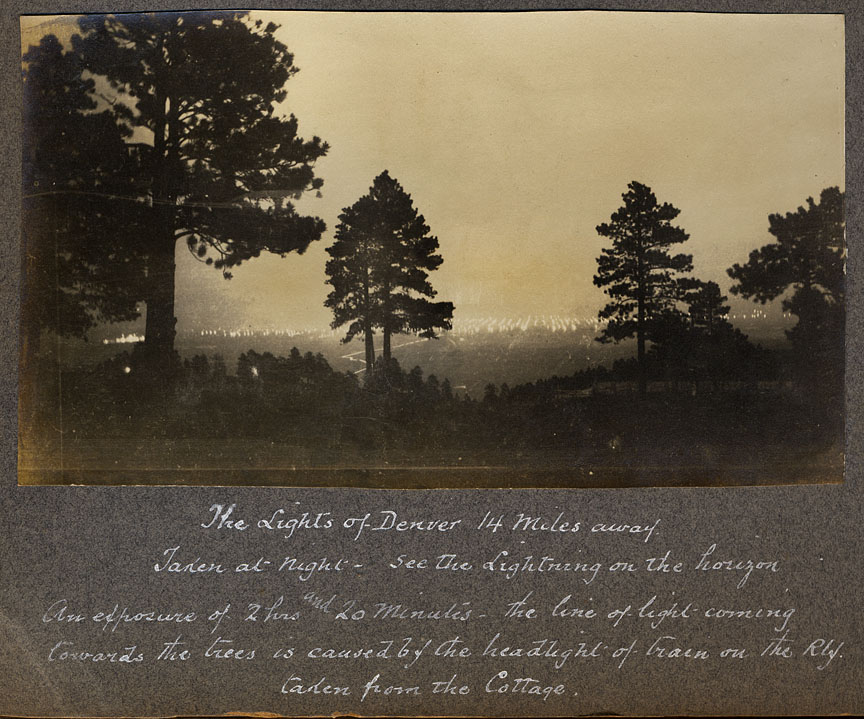 The Lights of Denver 14 Miles away.
Taken at Night - See the Lightning on the horizon
An exposure of 2 hrs and 20 Minutes - the line of light coming
towards the trees is caused by the headlight of train on the Rly.
taken from the Cottage.